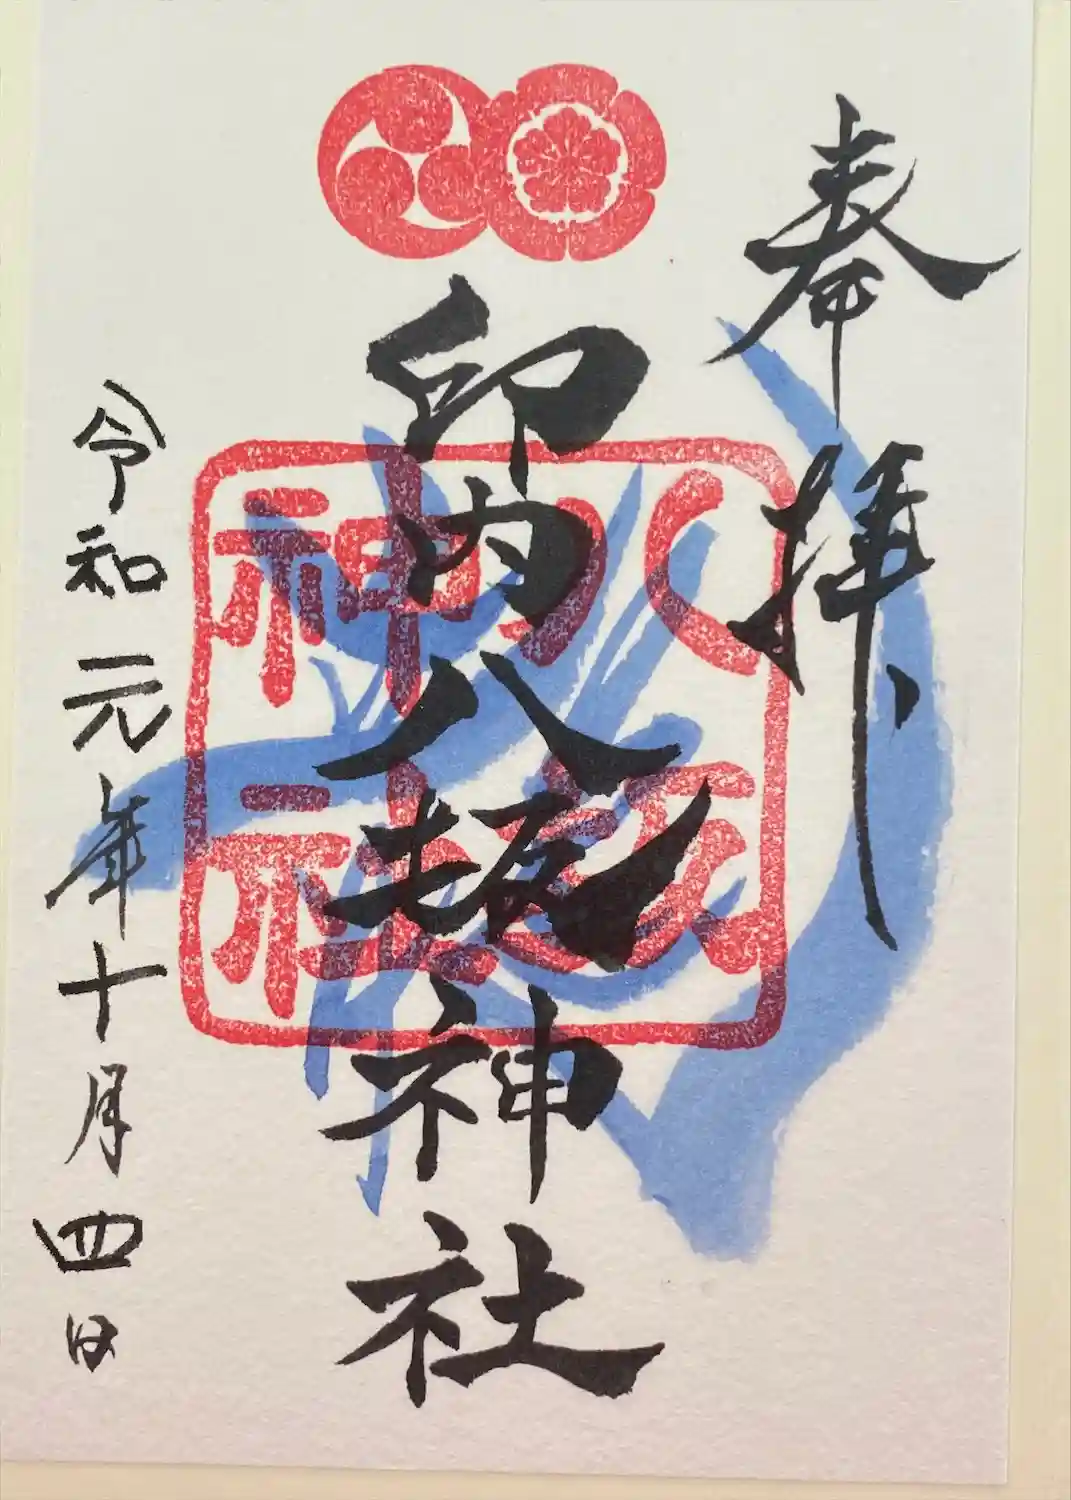 奉拝
印内八坂神社
八坂神社
令和元年十月四日